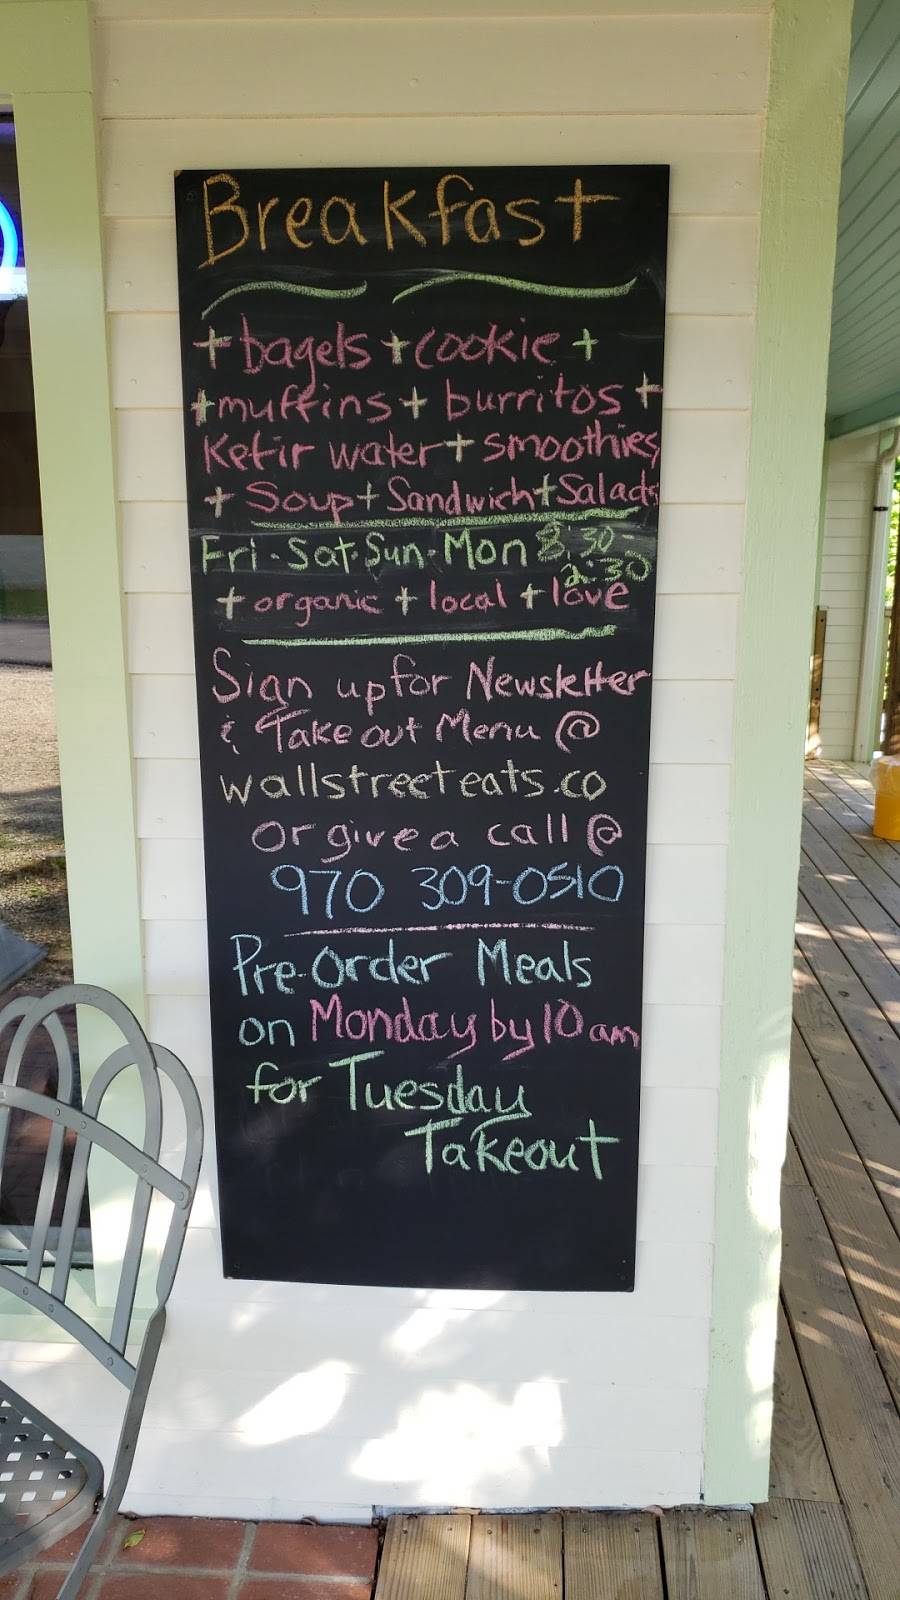 Breakfast
+ bagels + cookie +
+ muffins + burritos +
Kefir water + smoothies
+ Soup + Sandwich + Salads
Fri · Sat · Sun · Mon 8:30 -
2:30
+ organic + local + love
Sign up for Newsletter
& Take out Menu @
wallstreeteats.co
or give a call @
970 309-0510
Pre-Order Meals
on Monday by 10 am
for Tuesday
Takeout